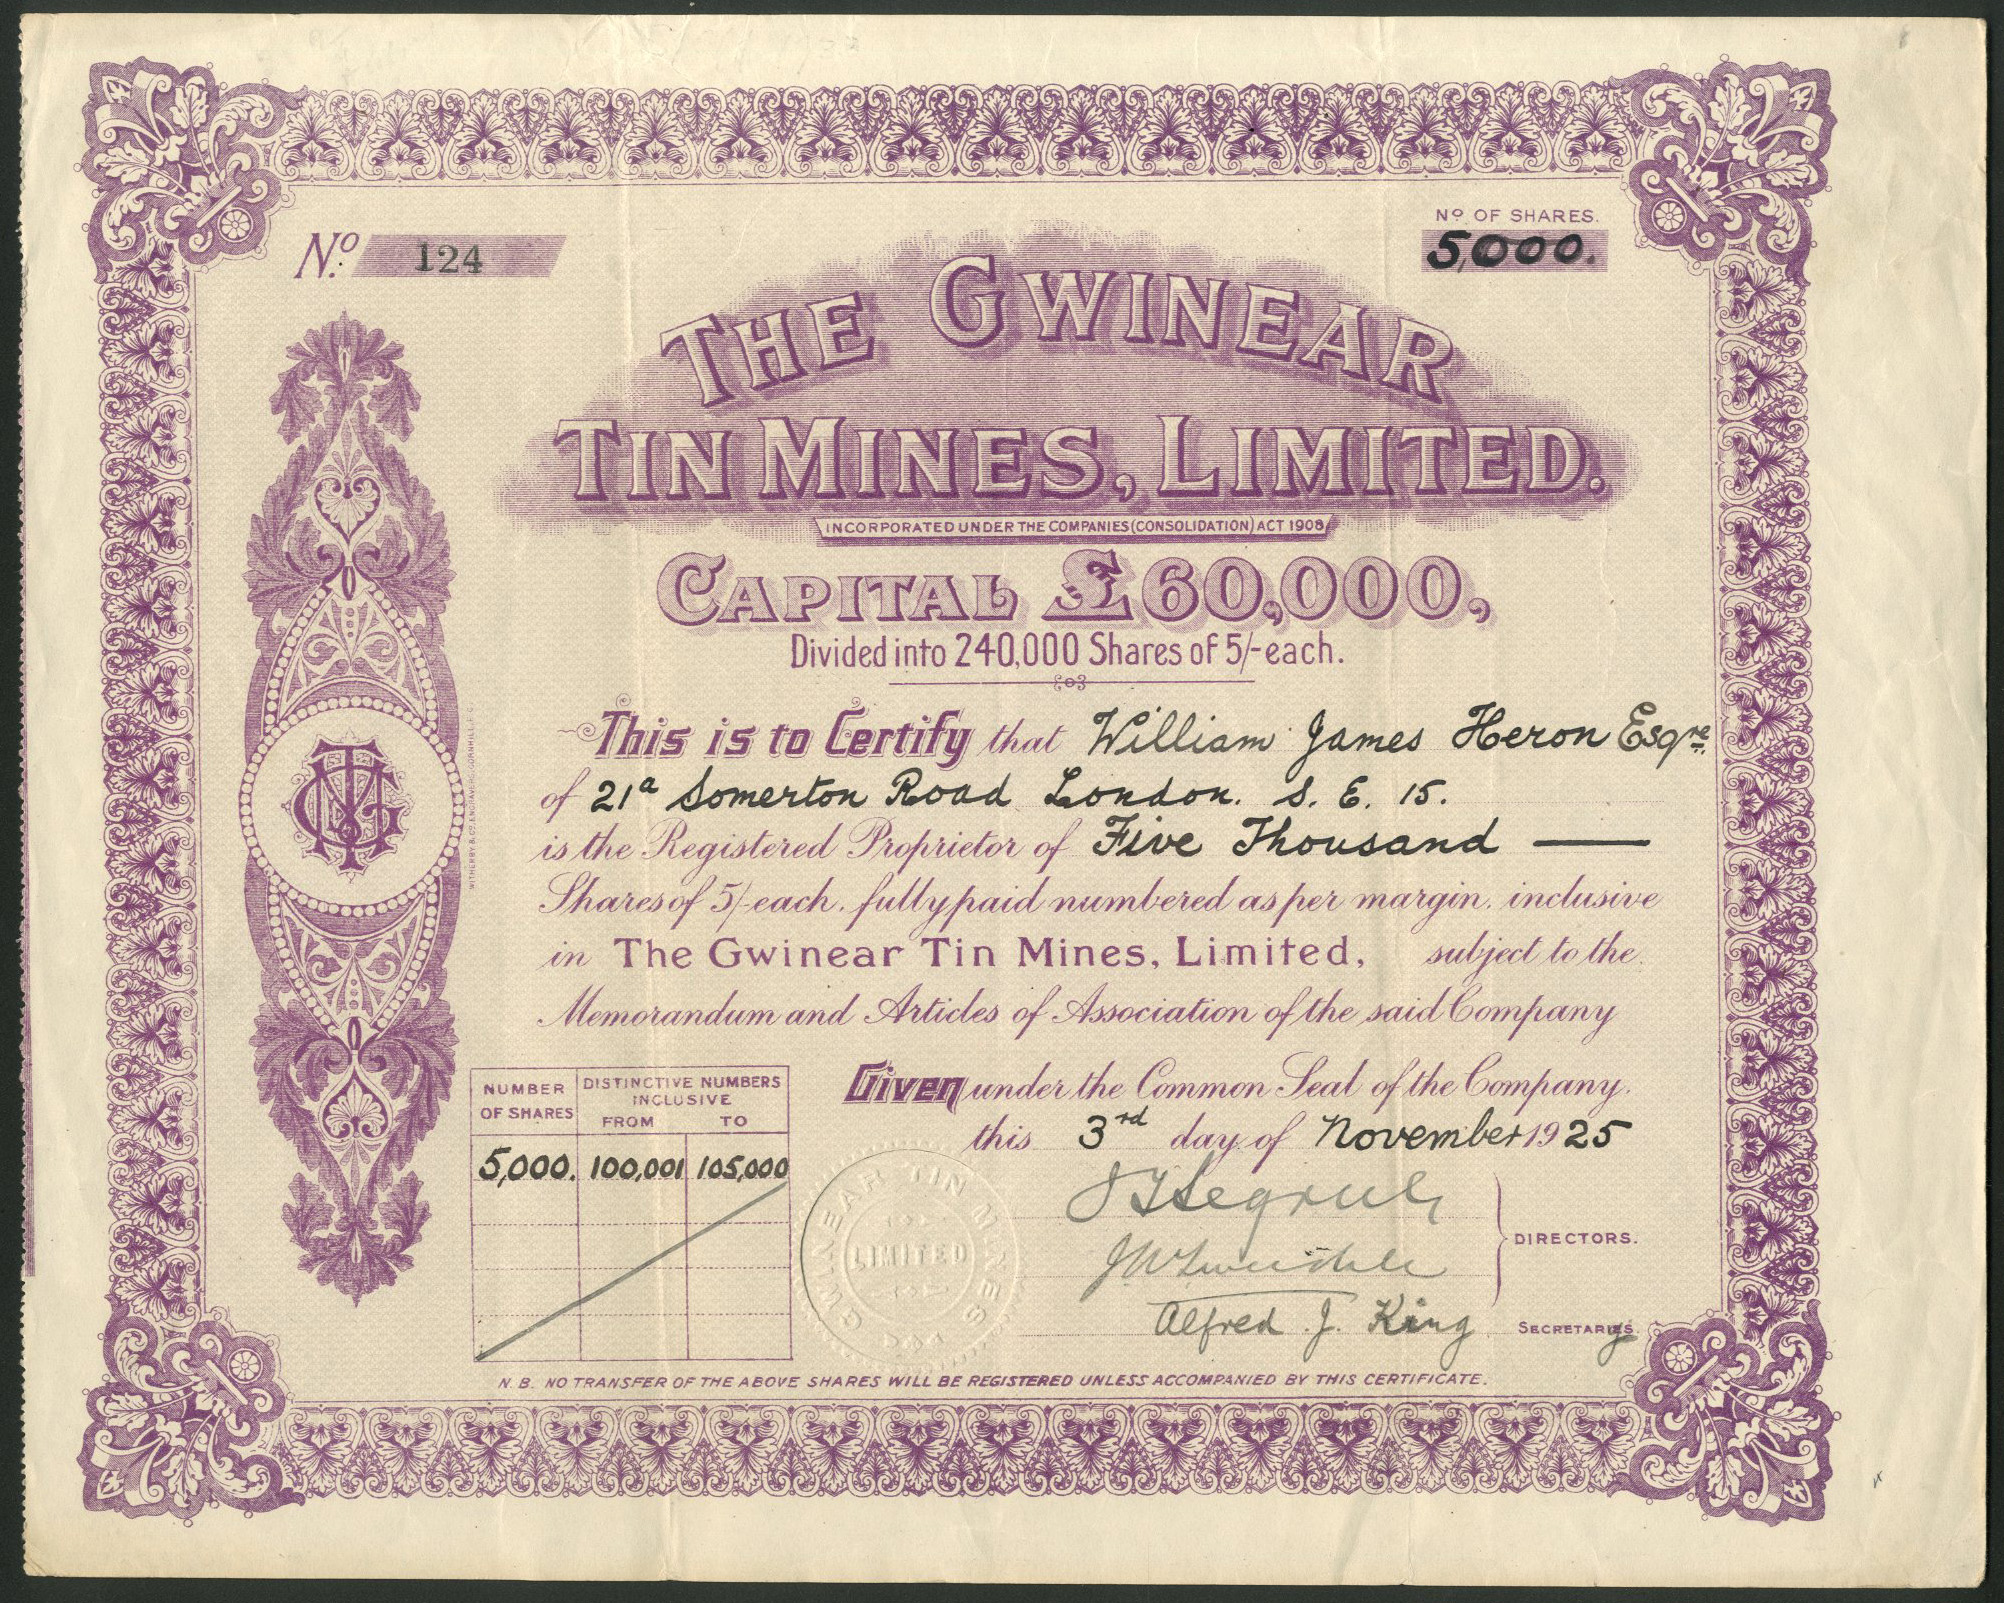 Nº 124
Nº OF SHARES.
5,000.
THE GWINEAR
TIN MINES, LIMITED.
INCORPORATED UNDER THE COMPANIES (CONSOLIDATION) ACT 1908.
CAPITAL £60,000,
Divided into 240,000 Shares of 5/- each.
This is to Certify that William James Heron Esqre.
of 21a Somerton Road London. S. E. 15.
is the Registered Proprietor of Five Thousand —
Shares of 5/- each, fully paid numbered as per margin, inclusive
in The Gwinear Tin Mines, Limited, subject to the
Memorandum and Articles of Association of the said Company
Given under the Common Seal of the Company.
this 3rd day of November 1925
NUMBER OF SHARES
DISTINCTIVE NUMBERS
INCLUSIVE
FROM TO
5,000. 100,001 105,000
GWINEAR TIN MINES
LIMITED
DIRECTORS.
Alfred J. King SECRETARY
N.B. NO TRANSFER OF THE ABOVE SHARES WILL BE REGISTERED UNLESS ACCOMPANIED BY THIS CERTIFICATE.
WITHERBY & Co. ENGRAVERS, CORNHILL, E.C.